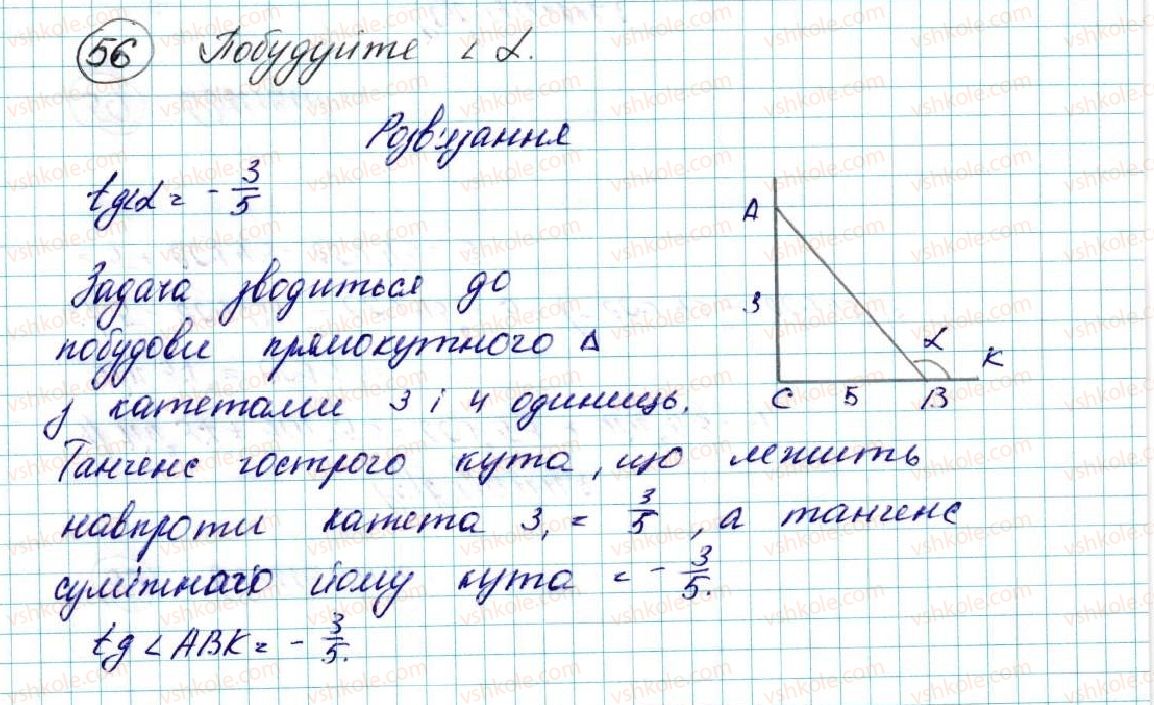 56 Побудуйте ∠ α.
Розв'язання
tg∠α = - 3/5
Задача зводиться до
побудови прямокутного Δ
з катетами 3 і 4 одиниць.
Танченс гострого кута, що лежить
навпроти катета 3, = 3/5, а танченс
суміжного йому кута = - 3/5.
tg ∠ABK = - 3/5.
A
3
α
K
C
5
B
vshkole.com